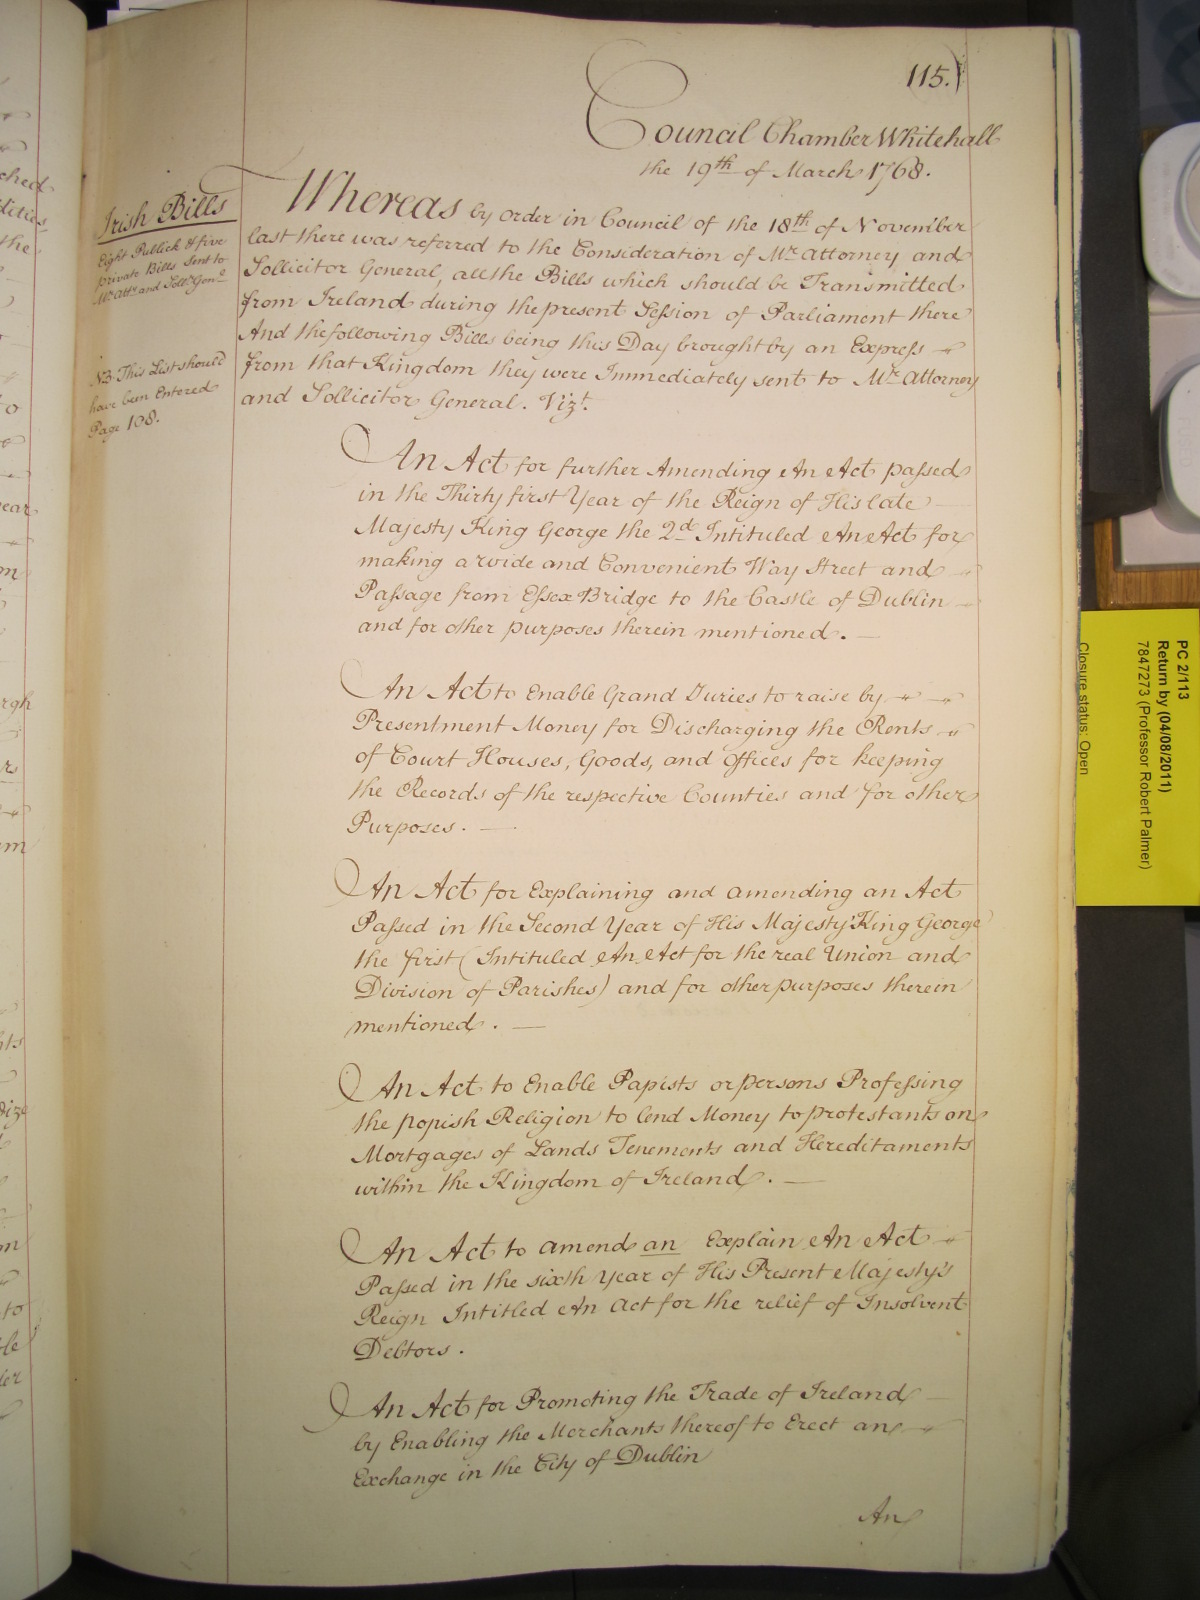 115.
Council Chamber Whitehall
the 19th of March 1768.
Irish Bills
Eight Publick & five
private Bills sent to
Mr. Atty. and Sollr. Genl.
NB This List should
have been Entered
Page 108.
Whereas by order in Council of the 18th of November
last there was referred to the Consideration of Mr. Attorney and
Sollicitor General, all the Bills which should be Transmitted
from Ireland during the present Session of Parliament there
And the following Bills being this Day brought by an Express
from that Kingdom they were Immediately sent to Mr. Attorney
and Sollicitor General. Vizt.
An Act for further Amending An Act passed
in the Thirty first Year of the Reign of His late
Majesty King George the 2d Intituled An Act for
making a wide and Convenient Way Street and
Passage from Essex Bridge to the Castle of Dublin
and for other purposes therein mentioned.
An Act to Enable Grand Juries to raise by
Presentment Money for Discharging the Rents
of Court Houses, Goods, and Offices for keeping
the Records of the respective Counties and for other
Purposes.
An Act for Explaining and amending an Act
Passed in the Second Year of His Majesty King George
the first (Intituled An Act for the real Union and
Division of Parishes) and for other purposes therein
mentioned.
An Act to Enable Papists or persons Professing
the popish Religion to lend Money to protestants on
Mortgages of Lands Tenements and Hereditaments
within the Kingdom of Ireland.
An Act to amend an Explain An Act
Passed in the sixth Year of His Present Majesty's
Reign Intitled An Act for the relief of Insolvent
Debtors.
An Act for Promoting the Trade of Ireland
by Enabling the Merchants thereof to Erect an
Exchange in the City of Dublin
An
PC 2/113
Return by (04/08/2011)
7847273 (Professor Robert Palmer)
Closure status: Open